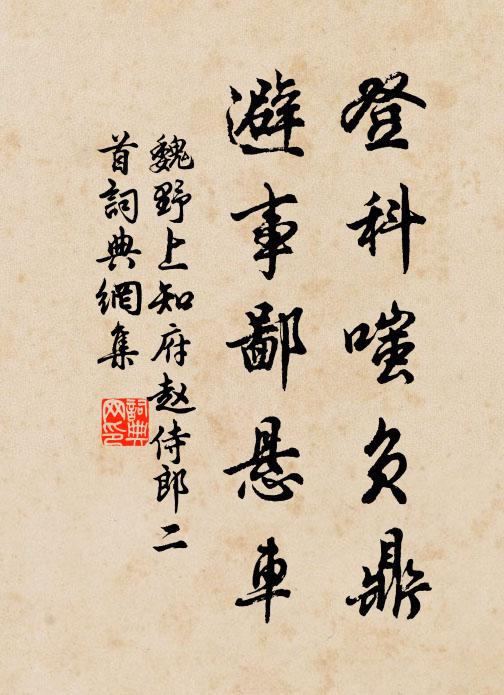 登科嗤负鼎
避事鄙悬車
魏野上知府赵侍郎二
首詞典網集
詞典网印